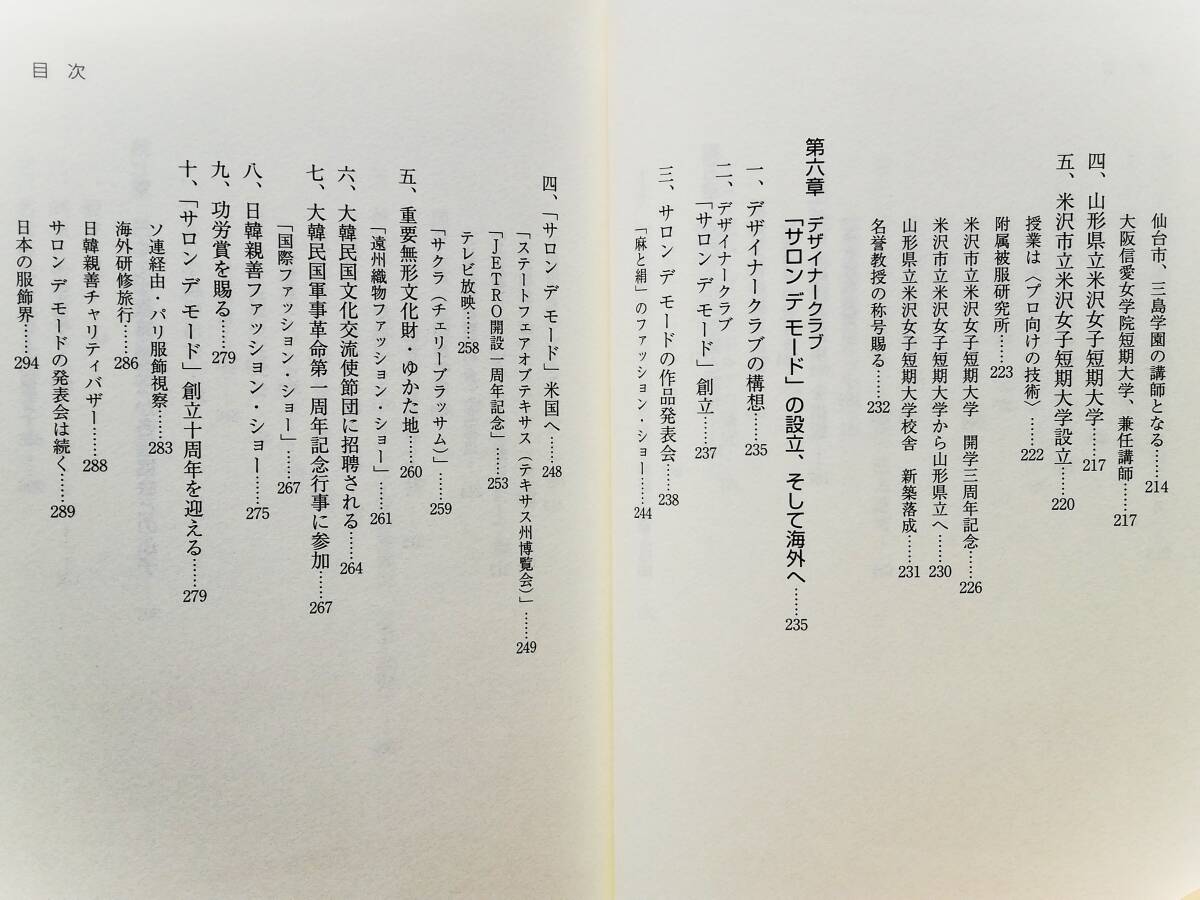 仙台市、三島学園の講師となる……214
大阪信愛女学院短期大学、兼任講師……217
四、山形県立米沢女子短期大学……217
五、米沢市立米沢女子短期大学設立……220
授業は〈プロ向けの技術〉……222
附属被服研究所……223
米沢市立米沢女子短期大学 開学三周年記念……226
米沢市立米沢女子短期大学から山形県立へ……230
山形県立米沢女子短期大学校舎 新築落成……231
名誉教授の称号賜る……232
第六章 デザイナークラブ
「サロン デ モード」の設立、そして海外へ……235
一、デザイナークラブの構想……235
二、デザイナークラブ
「サロン デ モード」創立……237
三、サロン デ モードの作品発表会……238
「麻と絹」のファッション・ショー……244
目次
四、「サロン デ モード」米国へ……248
「ステートフェアオブテキサス（テキサス州博覧会）」……249
「JETRO開設一周年記念」……253
テレビ放映……258
「サクラ（チェリーブラッサム）」……259
五、重要無形文化財・ゆかた地……260
「遠州織物ファッション・ショー」……261
六、大韓民国文化交流使節団に招聘される……264
七、大韓民国軍事革命第一周年記念行事に参加……267
「国際ファッション・ショー」……267
八、日韓親善ファッション・ショー……275
九、功労賞を賜る……279
十、「サロン デ モード」創立十周年を迎える……279
ソ連経由・パリ服飾視察……283
海外研修旅行……286
日韓親善チャリティバザー……288
サロン デ モードの発表会は続く……289
日本の服飾界……294